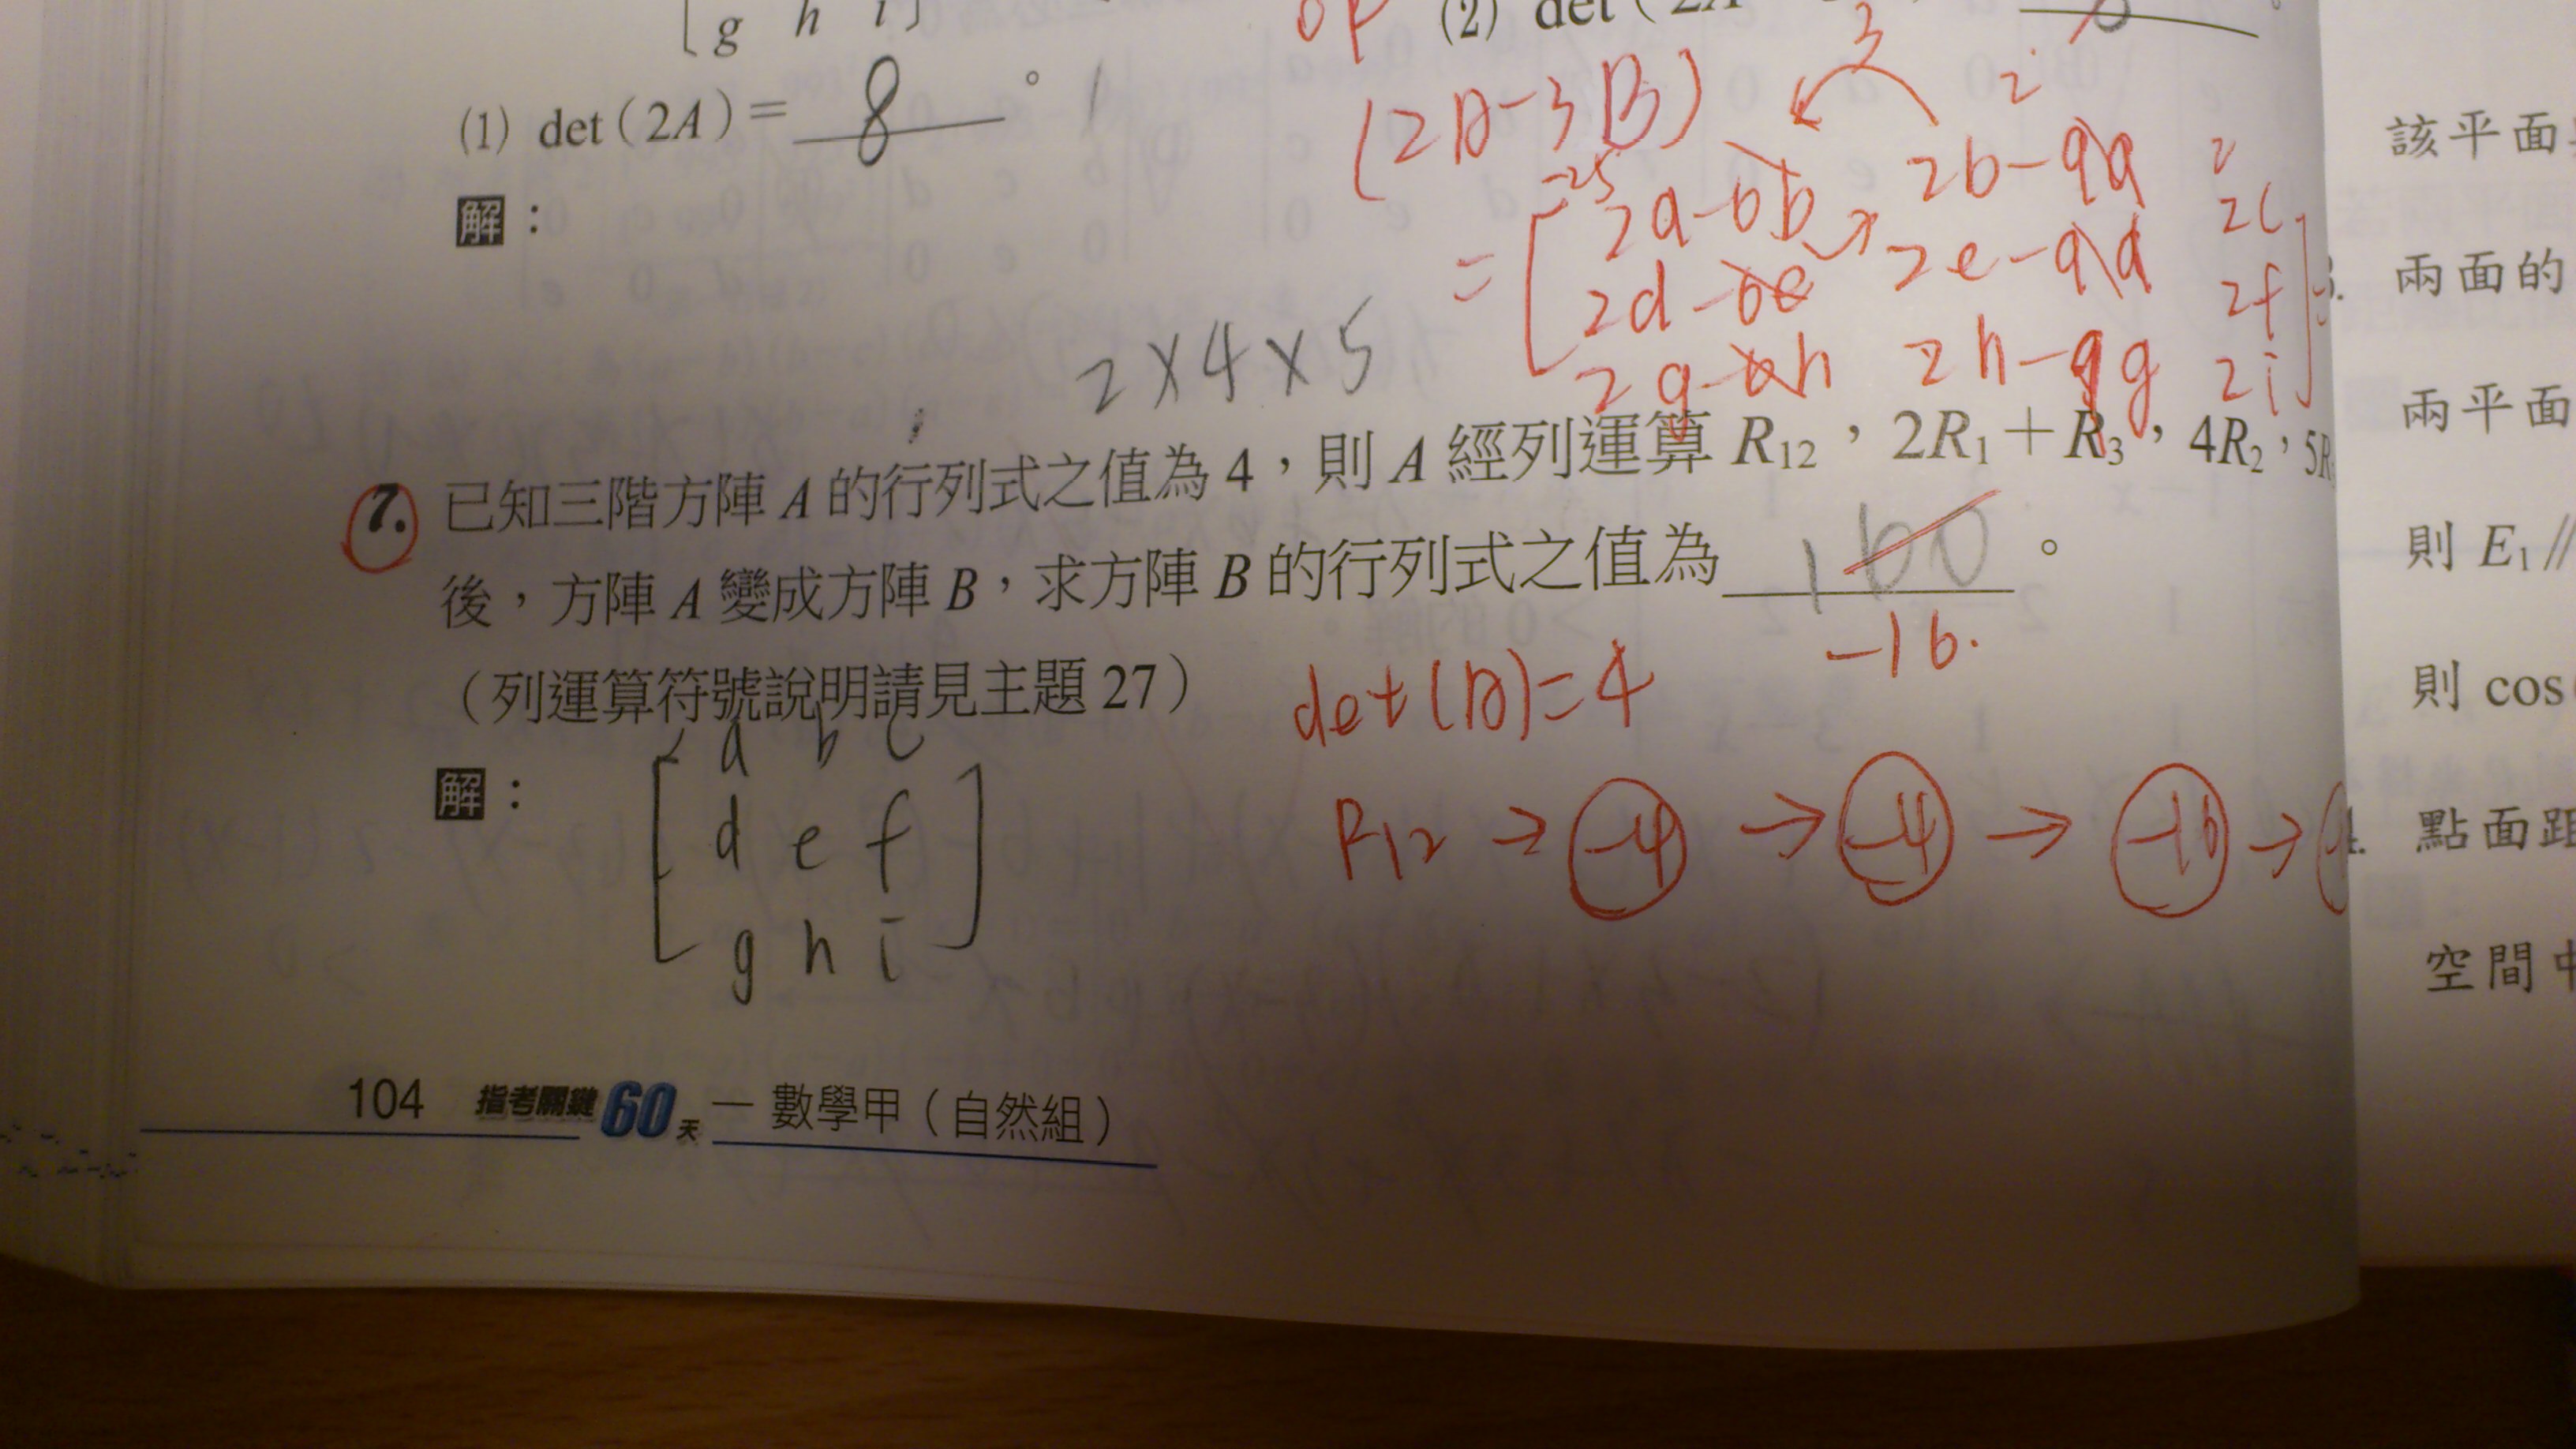 g h i
(2) det(2A
(1) det(2A)= 8 。
(2A-3B)
解：
= [ 2a-6b 2b-9a 2c
2d-6e 2e-9d 2f
2g-6h 2h-9g 2i ] =
2×4×5
7. 已知三階方陣 A 的行列式之值為 4，則 A 經列運算 R₁₂，2R₁＋R₃，4R₂，5R
後，方陣 A 變成方陣 B，求方陣 B 的行列式之值為 160 。
-16.
（列運算符號說明請見主題 27）
det(A)=4
解：
a b c
d e f
g h i
R12 → -4 → -4 → -16 →
104 指考關鍵60天 — 數學甲（自然組）
該平面
3. 兩面的
兩平面
則 E₁//
則 cos
4. 點面距
空間中